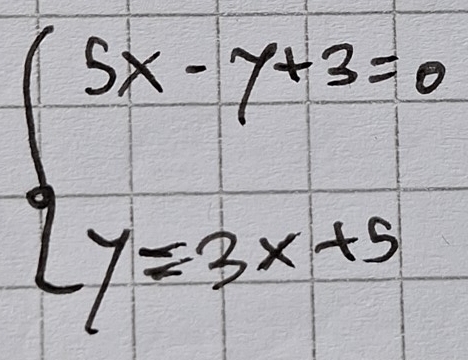 5x - y + 3 = 0
y = 3x + 5